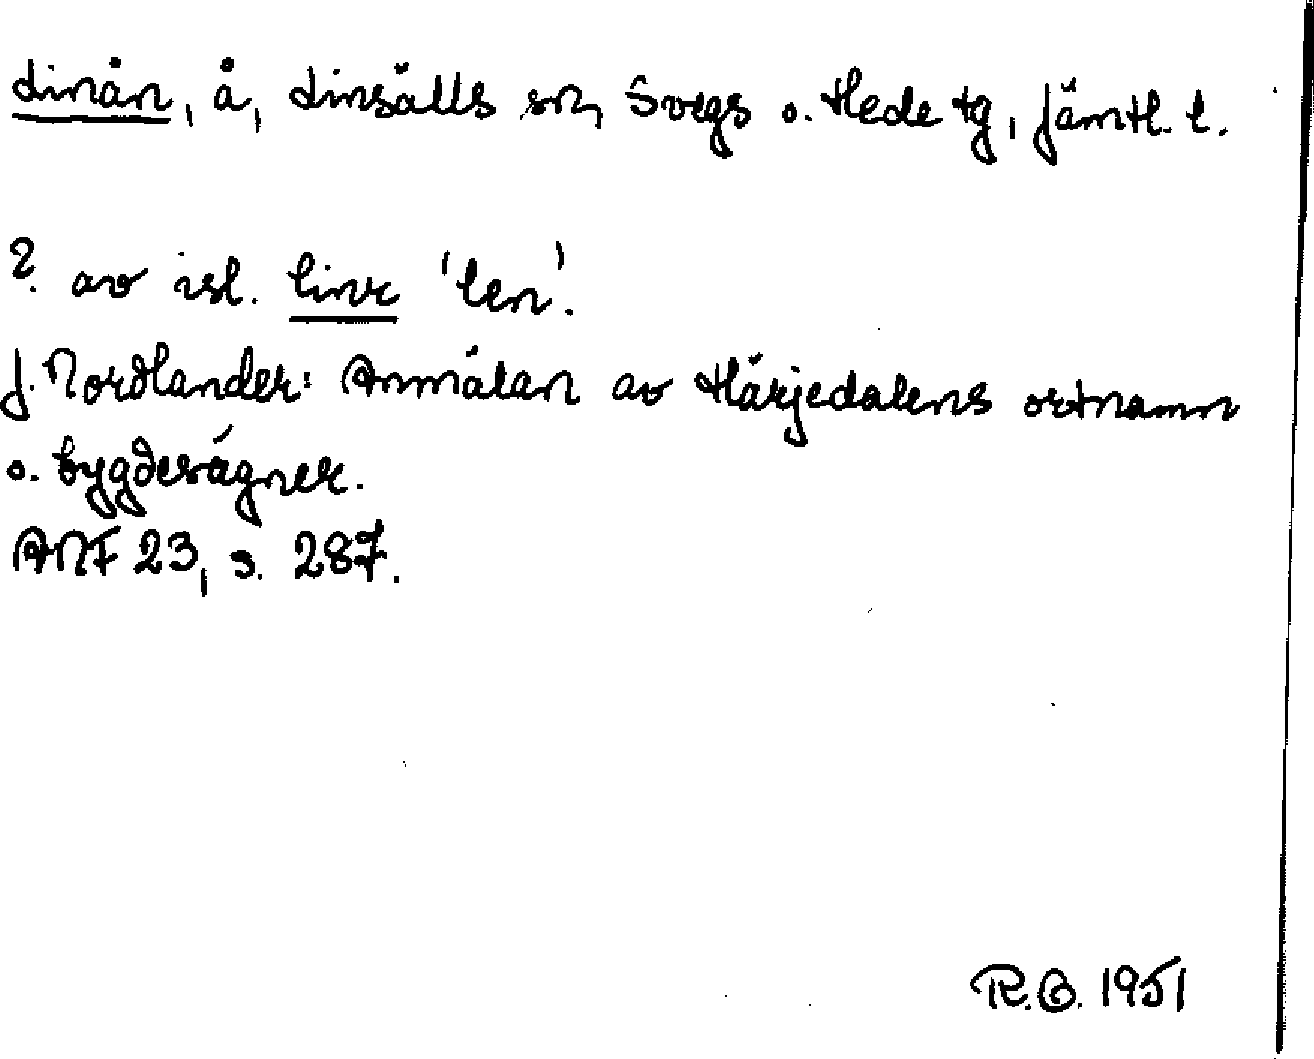 Linån, å, Linsälls sn, Svegs o. Hede tg, Jämtl. l.
? av isl. linr 'len'.
J. Nordlander: Anmälan av Härjedalens ortnamn
o. bygdesägner.
ANF 23, s. 287.
R.G. 1951